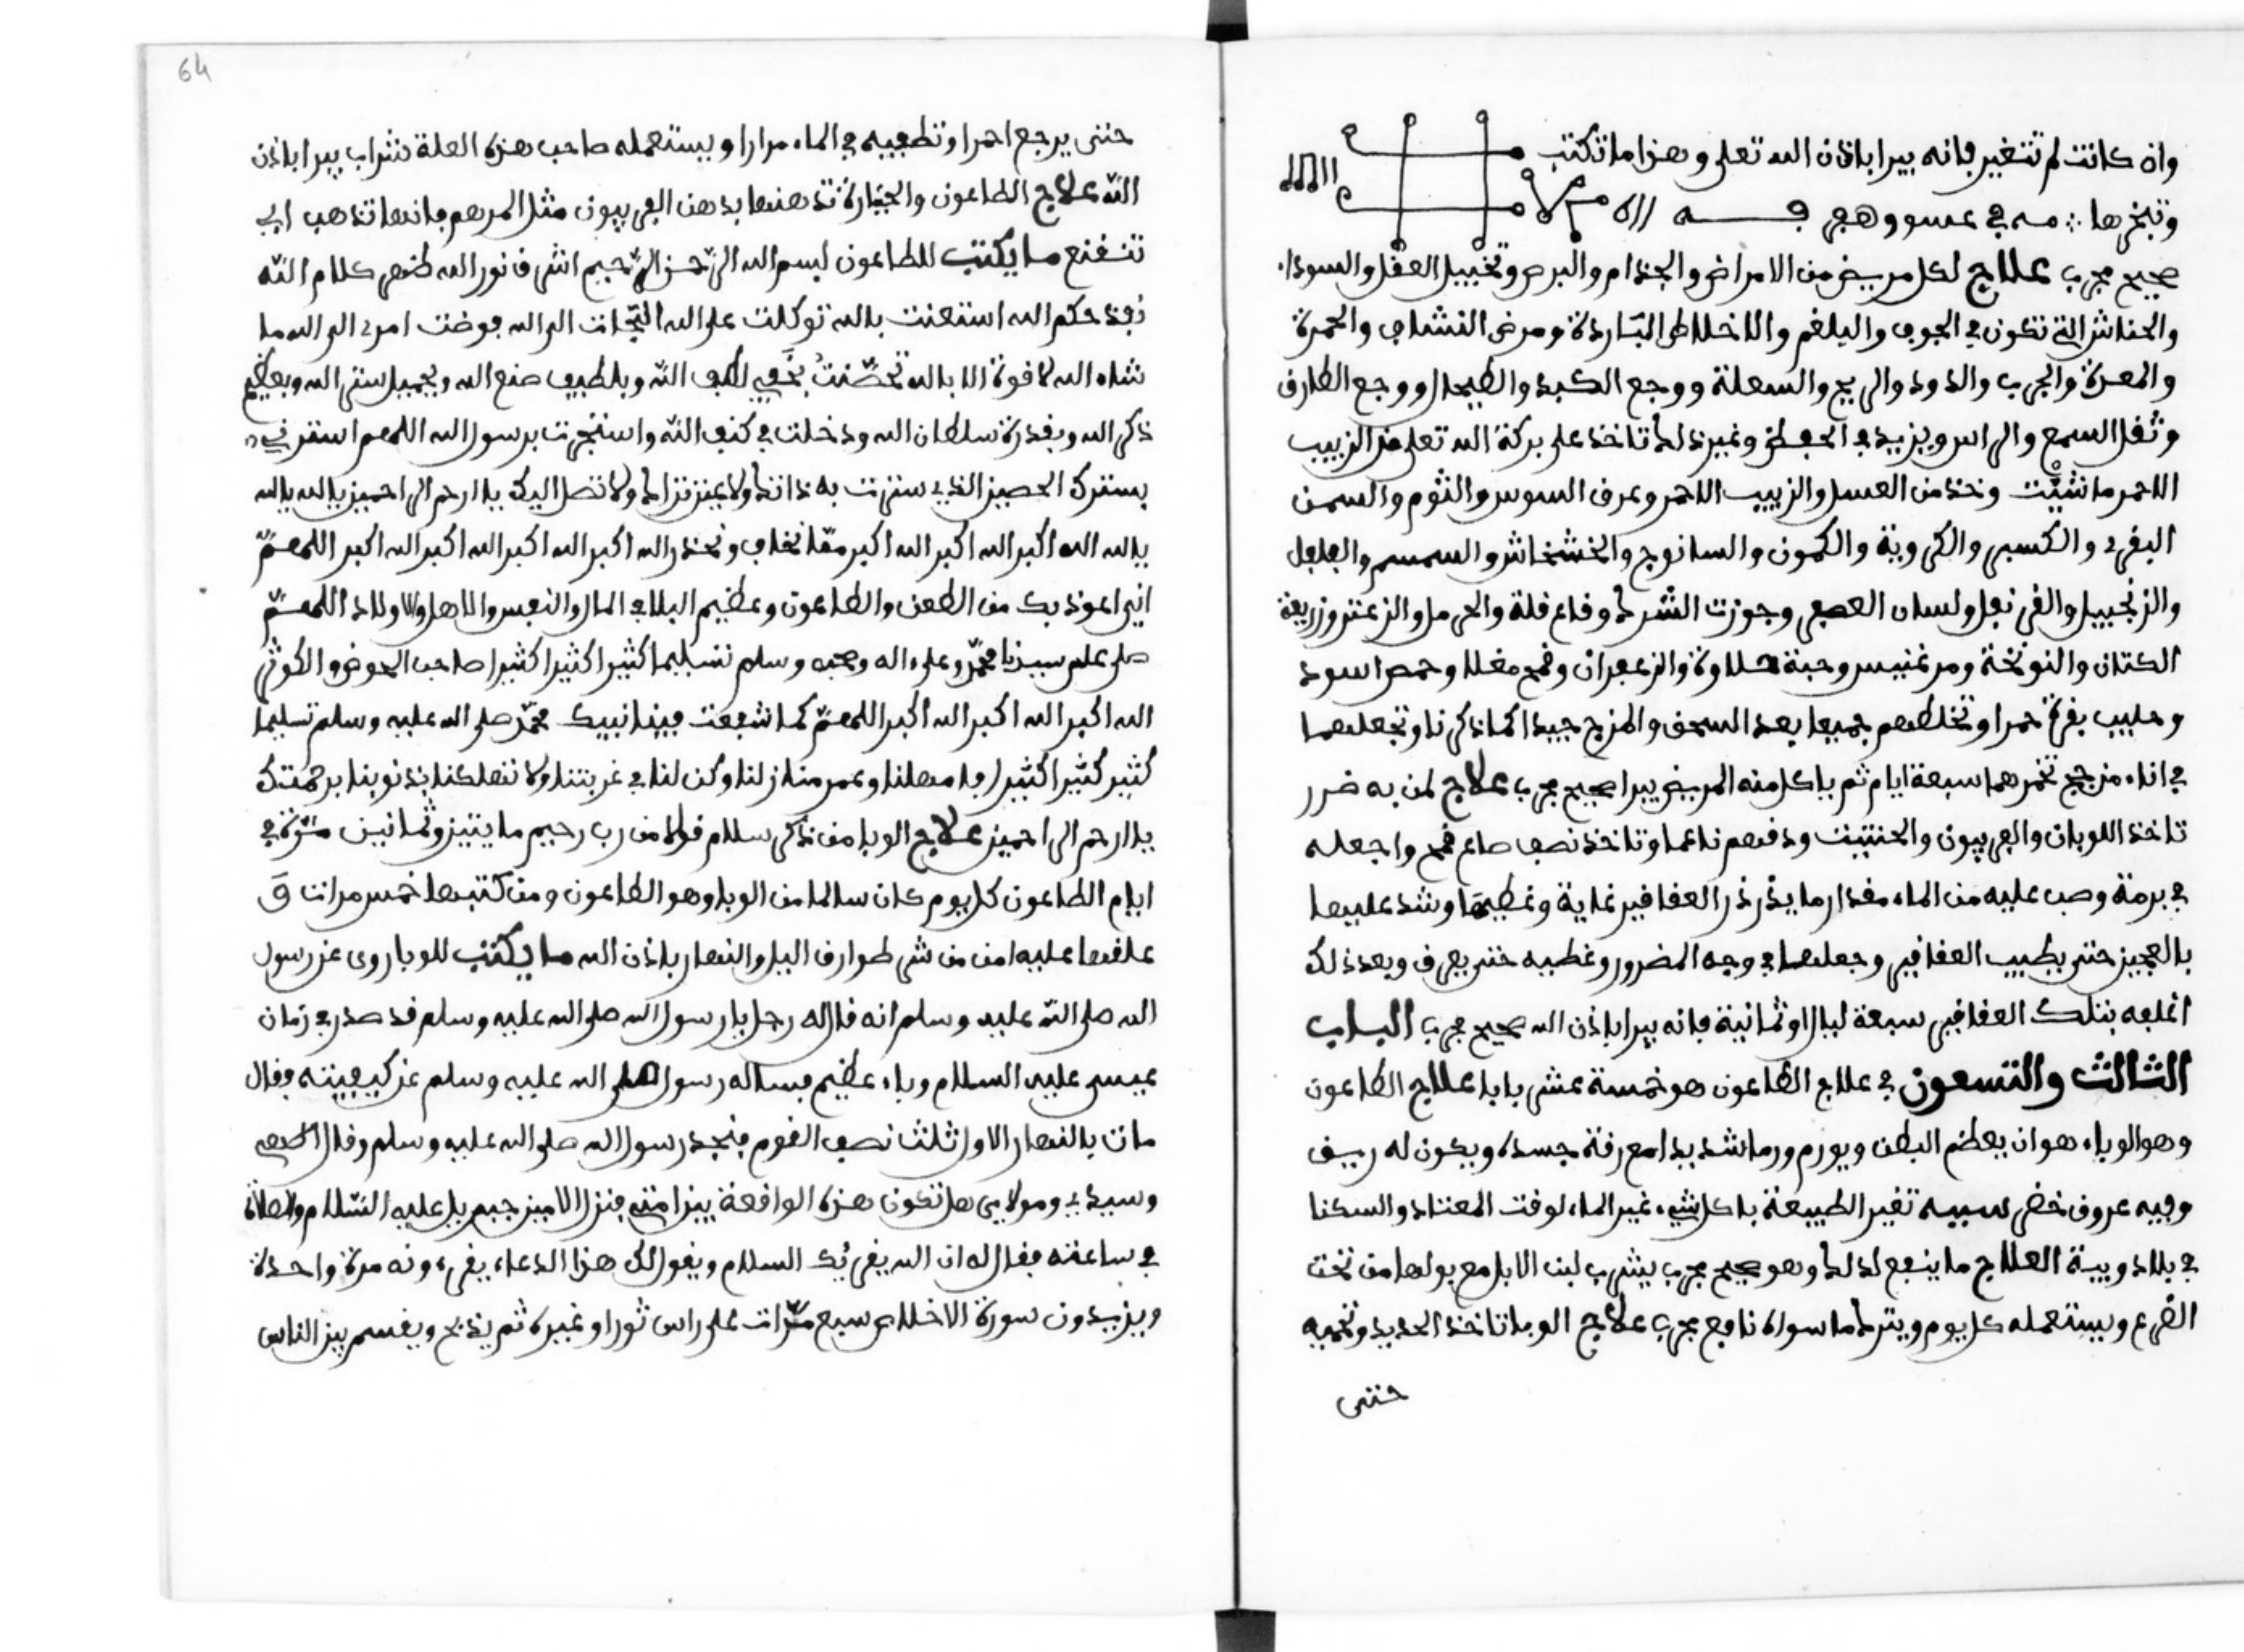 وان كانت لم تتغير فانه يبرا باذن الله تعلى وهذا ما تكتب
وتبخرها مسه في عسو وهجي فه
صحيح مجرب علاج لكل مريض من الامراض والجذام والبرص وتخبيل العقل والسوداء
والحناش التي تكون في الجوف والبلغم والاخلاط الباردة ومرض النشاف والحمرة
والمعدة والجرب والدود والريح والسعلة ووجع الكبد والطيحال ووجع الطارف
وثقل السمع والراس ويزيد في الحفظ وغير ذلك تاخذ على بركة الله تعلى من الزبيب
الاحمر ما شيت وخذ من العسل والزبيب الاحمر وعرق السوس والثوم والسمن
البقري والكسبر والكروية والكمون والسانوج والخشخاش والسمسم والفلفل
والزنجبيل والقرنفل ولسان العصفر وجوزت الشرك وقاع قلة والحرمل والزعتر وزريعة
الكتان والنونخة ومرغنيس وحبة حلاوة والزعفران وقمح مغلا وحمص اسود
وحليب بقرة حمرا وتخلطهم جميعا بعد السحق والمزج جيدا كما ذكرنا وتجعلهما
في اناء مزجج تخمرهما سبعة ايام ثم ياكل منه المريض يبرا صحيح مجرب علاج لمن به ضرر
تاخذ اللوبان والفربيون والحنتيت ودقهم ناعما وتاخذ نصف صاع قمح واجعله
في برمة وصب عليه من الماء مقدار ما يذرذر العقاقير غاية وغطيها وشد عليها
بالعجين حتى يطيب العقاقير وجعلها في وجه المضرور وغطيه حتى يعرق وبعد ذلك
اغلفه بتلك العقاقير سبعة ليال او ثمانية فانه يبرا باذن الله صحيح مجرب الباب
الثالث والتسعون في علاج الطاعون هو خمسة عشر بابا علاج الطاعون
وهو الوباء هو ان يعظم البطن ويورم ورما شديدا مع رقة جسده ويكون له ريف
وفيه عروق خضر سببه تغير الطبيعة باكل شيء غير الماء لوقت المعتاد والسكنا
في بلاد وبية العلاج ما ينفع لذلك وهو صحيح مجرب يشرب لبن الابل مع بولها من تحت
الضرع ويستعمله كل يوم ويترك ما سواه نافع مجرب علاج الوبا تاخذ الحديد وتحميه
حتى
64
حتى يرجع احمرا وتطفيه في الماء مرارا ويستعمله صاحب هذه العلة شراب يبرا باذن
الله علاج الطاعون والحبارة تدهنها بدهن الفربيون مثل المرهم فانها تذهب اي
تنفقع ما يكتب للطاعون بسم الله الرحمن الرحيم اشرق نور الله ظهر كلام الله
نفذ حكم الله استعنت بالله توكلت على الله التجات الى الله فوضت امري الى الله ما
شاء الله لا قوة الا بالله تحصنت بخفي لطف الله وبلطيف صنع الله وبجميل ستر الله وبعظيم
ذكر الله وبقدرة سلطان الله ودخلت في كنف الله واستجرت برسول الله اللهم استرني
بسترك الحصين الذي سترت به ذاتك ولا عين تراك ولا تصل اليك يا ارحم الراحمين يا الله يا الله
يا الله الله اكبر الله اكبر الله اكبر مما نخاف ونحذر الله اكبر الله اكبر الله اكبر الله اكبر اللهم
اني اعوذ بك من الطعن والطاعون وعظيم البلا في المال والنفس والاهل والاولاد اللهم
صلى على سيدنا محمد وعلى اله وصحبه وسلم تسليما كثيرا كثيرا كثيرا صاحب الحوض والكوثر
الله اكبر الله اكبر الله اكبر اللهم كما شفعت فينا نبيك محمد صلى الله عليه وسلم تسليما
كثير كثيرا كثيرا فامهلنا وعمر منازلنا وكن لنا في غربتنا ولا تهلكنا بذنوبنا برحمتك
يا ارحم الراحمين علاج الوبا من ذكر سلام قولا من رب رحيم مايتين وثمانين مرة في
ايام الطاعون كل يوم كان سالما من الوبا وهو الطاعون ومن كتبها خمس مرات و
علقها عليه امن من شر طوارق اليل والنهار باذن الله ما يكتب للوبا روى عن رسول
الله صلى الله عليه وسلم انه قال له رجل يا رسول الله صلى الله عليه وسلم قد صدر في زمان
عيسى عليه السلام وباء عظيم فساله رسول صلى الله عليه وسلم عن كيفيته فقال
مات بالنهار الاول ثلث نصف القوم فنجد رسول الله صلى الله عليه وسلم وقال الهي
وسيدي ومولاي هل تكون هذه الواقعة بين امتي فنزل الامين جبريل عليه السلام والصلاة
في ساعته فقال له ان الله يقرئك السلام ويقول لك هذا الدعاء يقرءونه مرة واحدة
ويزيدون سورة الاخلاص سبع مرات على راس ثور او غيره ثم يذبح ويقسم بين الناس